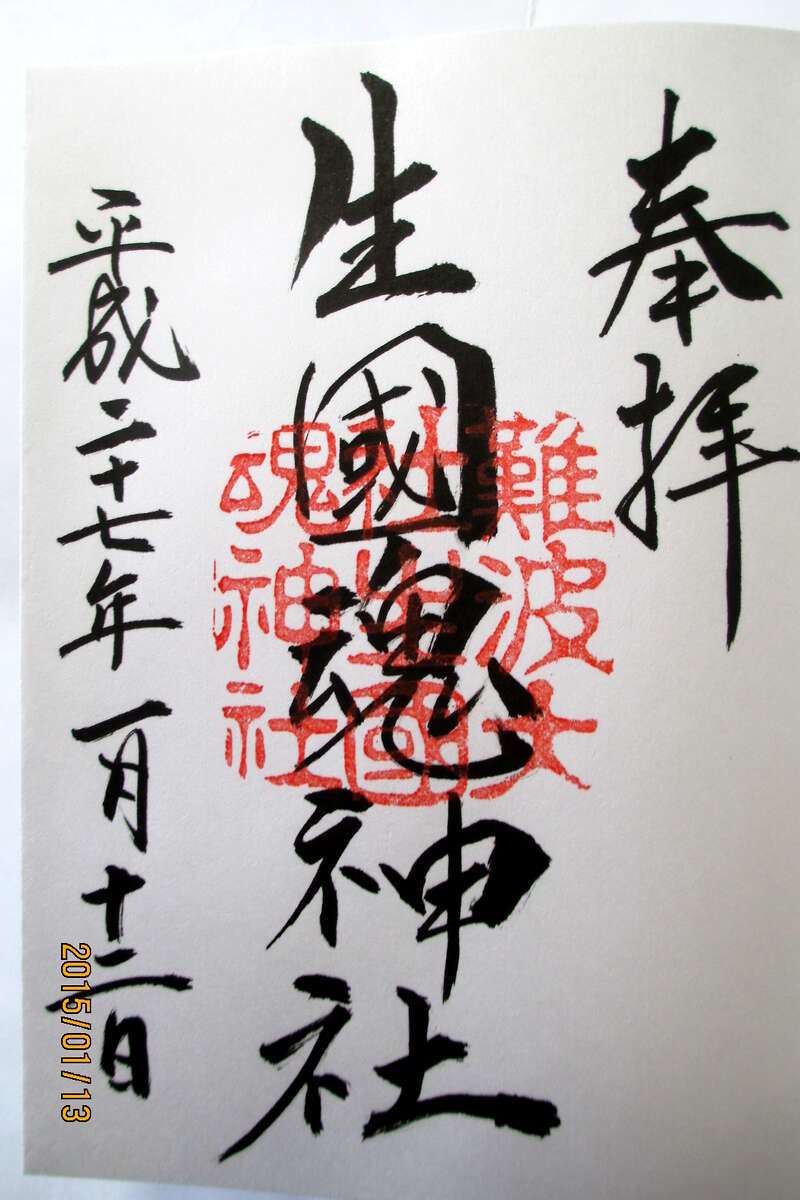 奉拝
生國魂神社
難波大
社生國
魂神社
平成二十七年一月十二日
2015/01/13